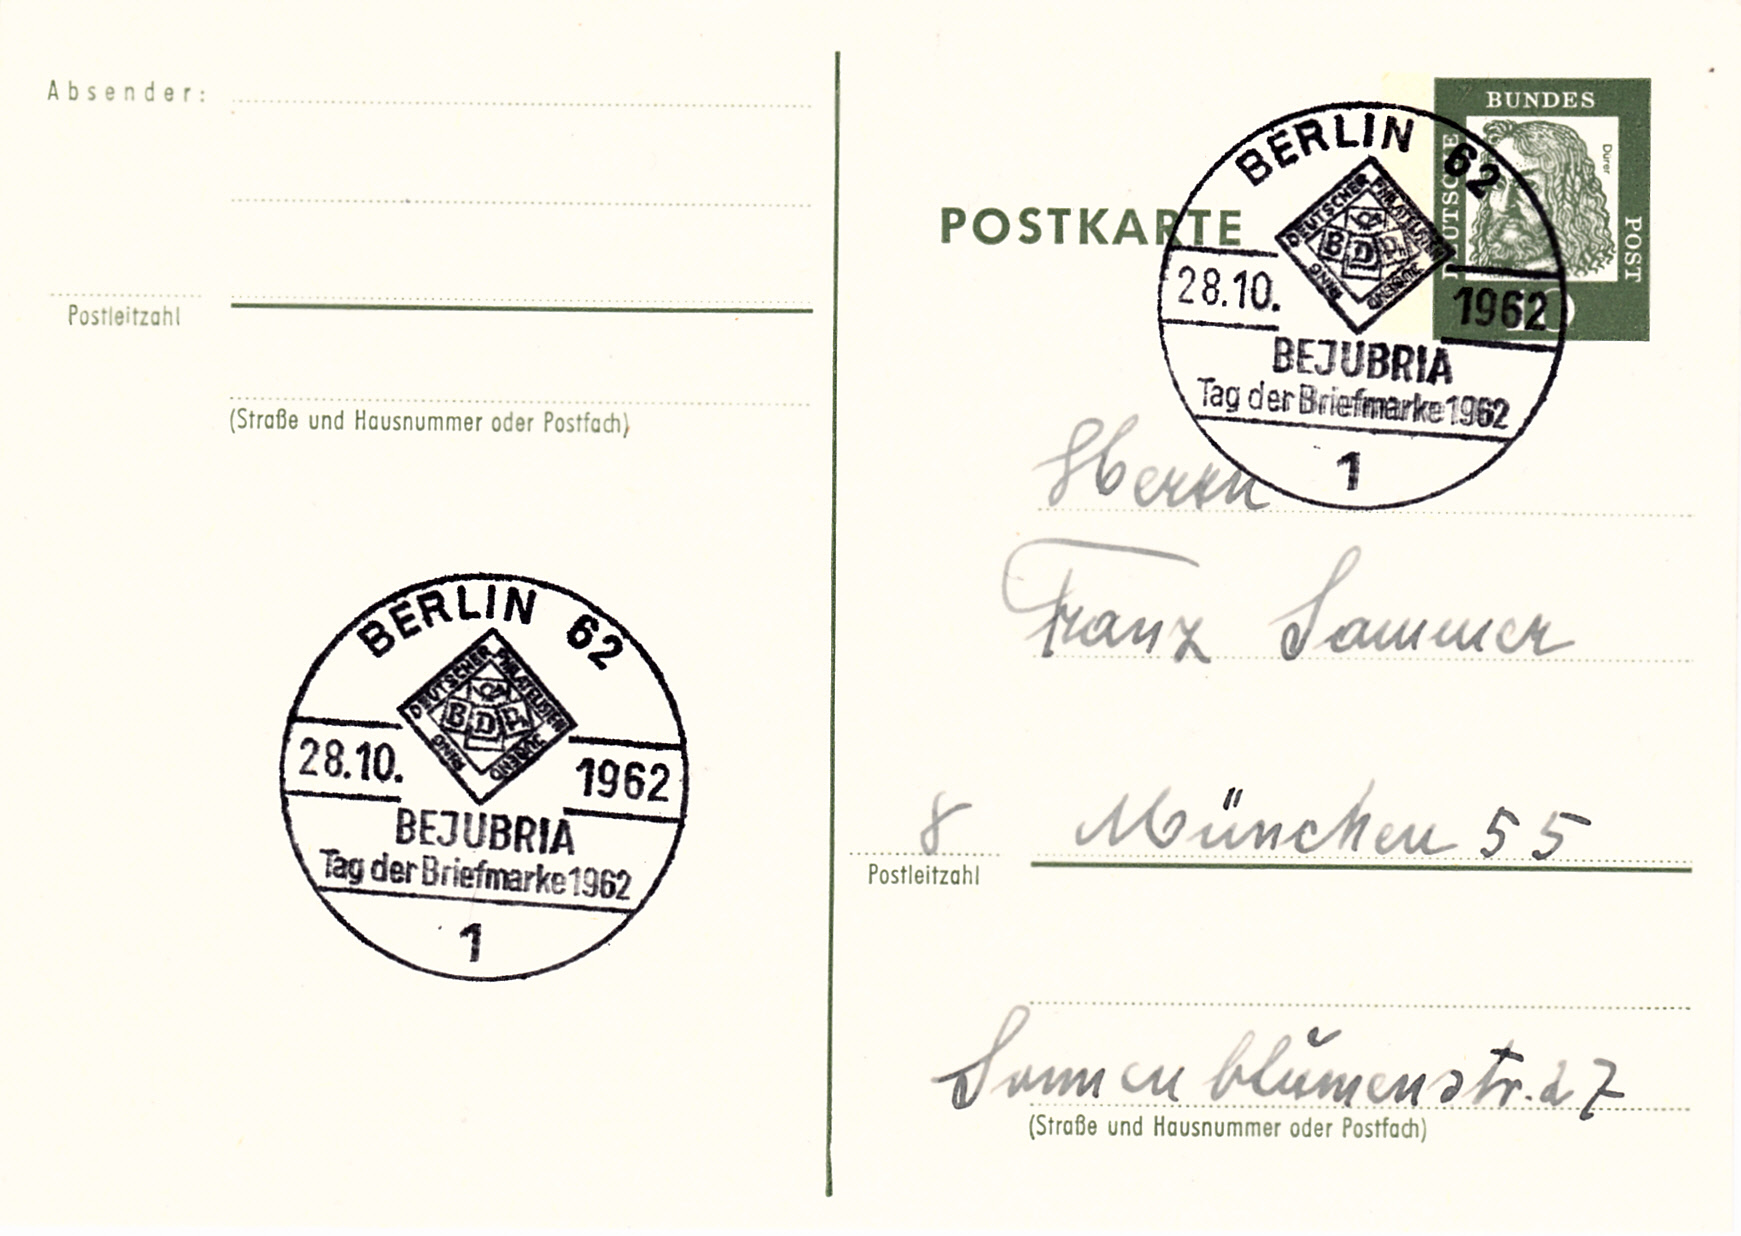 Absender:
Postleitzahl
(Straße und Hausnummer oder Postfach)
BERLIN 62
DEUTSCHER PHILATELISTEN
JUGEND RING
BDPh
28.10. 1962
BEJUBRIA
Tag der Briefmarke 1962
1
POSTKARTE
BUNDES
DEUTSCHE
POST
Dürer
10
BERLIN 62
DEUTSCHER PHILATELISTEN
JUGEND RING
BDPh
28.10. 1962
BEJUBRIA
Tag der Briefmarke 1962
1
Herrn
Franz Sammer
8 München 55
Postleitzahl
Sonnenblumenstr. 27
(Straße und Hausnummer oder Postfach)